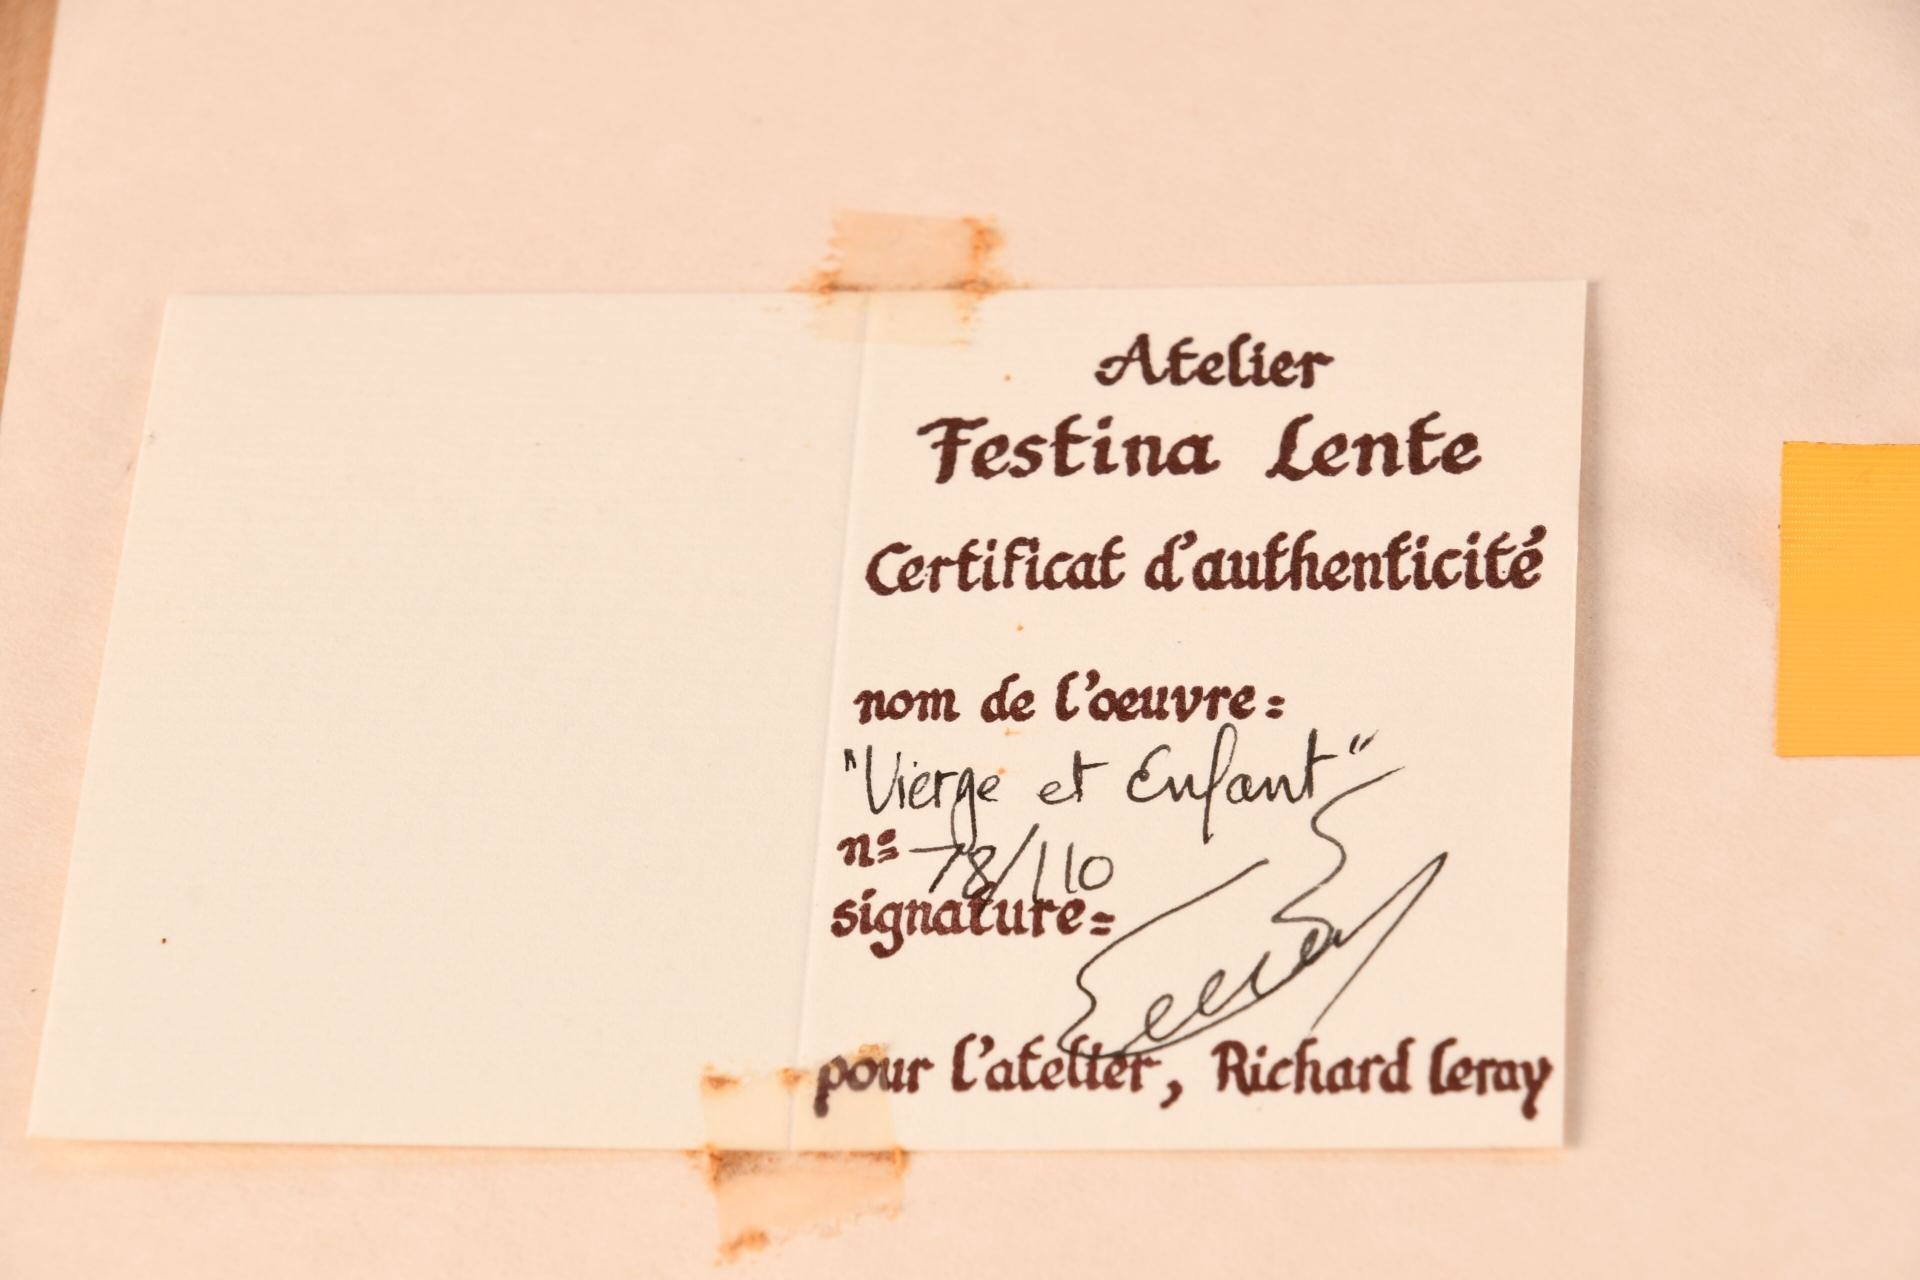 Atelier
Festina Lente
Certificat d'authenticité
nom de l'oeuvre :
"Vierge et Enfant"
nº 78/110
signature :
pour l'atelier, Richard Leray